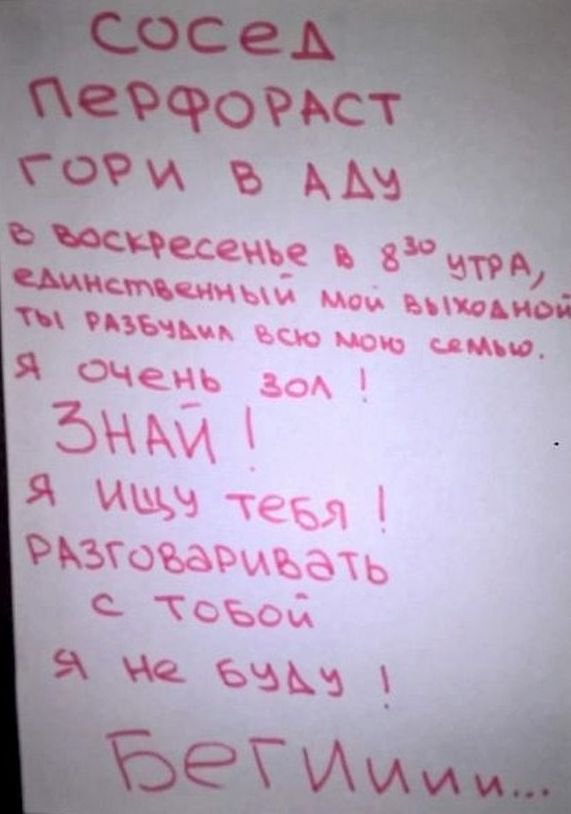 СОСЕД
ПЕРФОРАСТ
ГОРИ В АДУ
В ВОСКРЕСЕНЬЕ В 8³⁰ УТРА,
ЕДИНСТВЕННЫЙ МОЙ ВЫХОДНОЙ
ТЫ РАЗБУДИЛ ВСЮ МОЮ СЕМЬЮ.
Я ОЧЕНЬ ЗОЛ!
ЗНАЙ!
Я ИЩУ ТЕБЯ!
РАЗГОВАРИВАТЬ
С ТОБОЙ
Я НЕ БУДУ!
БЕГИИИИ...